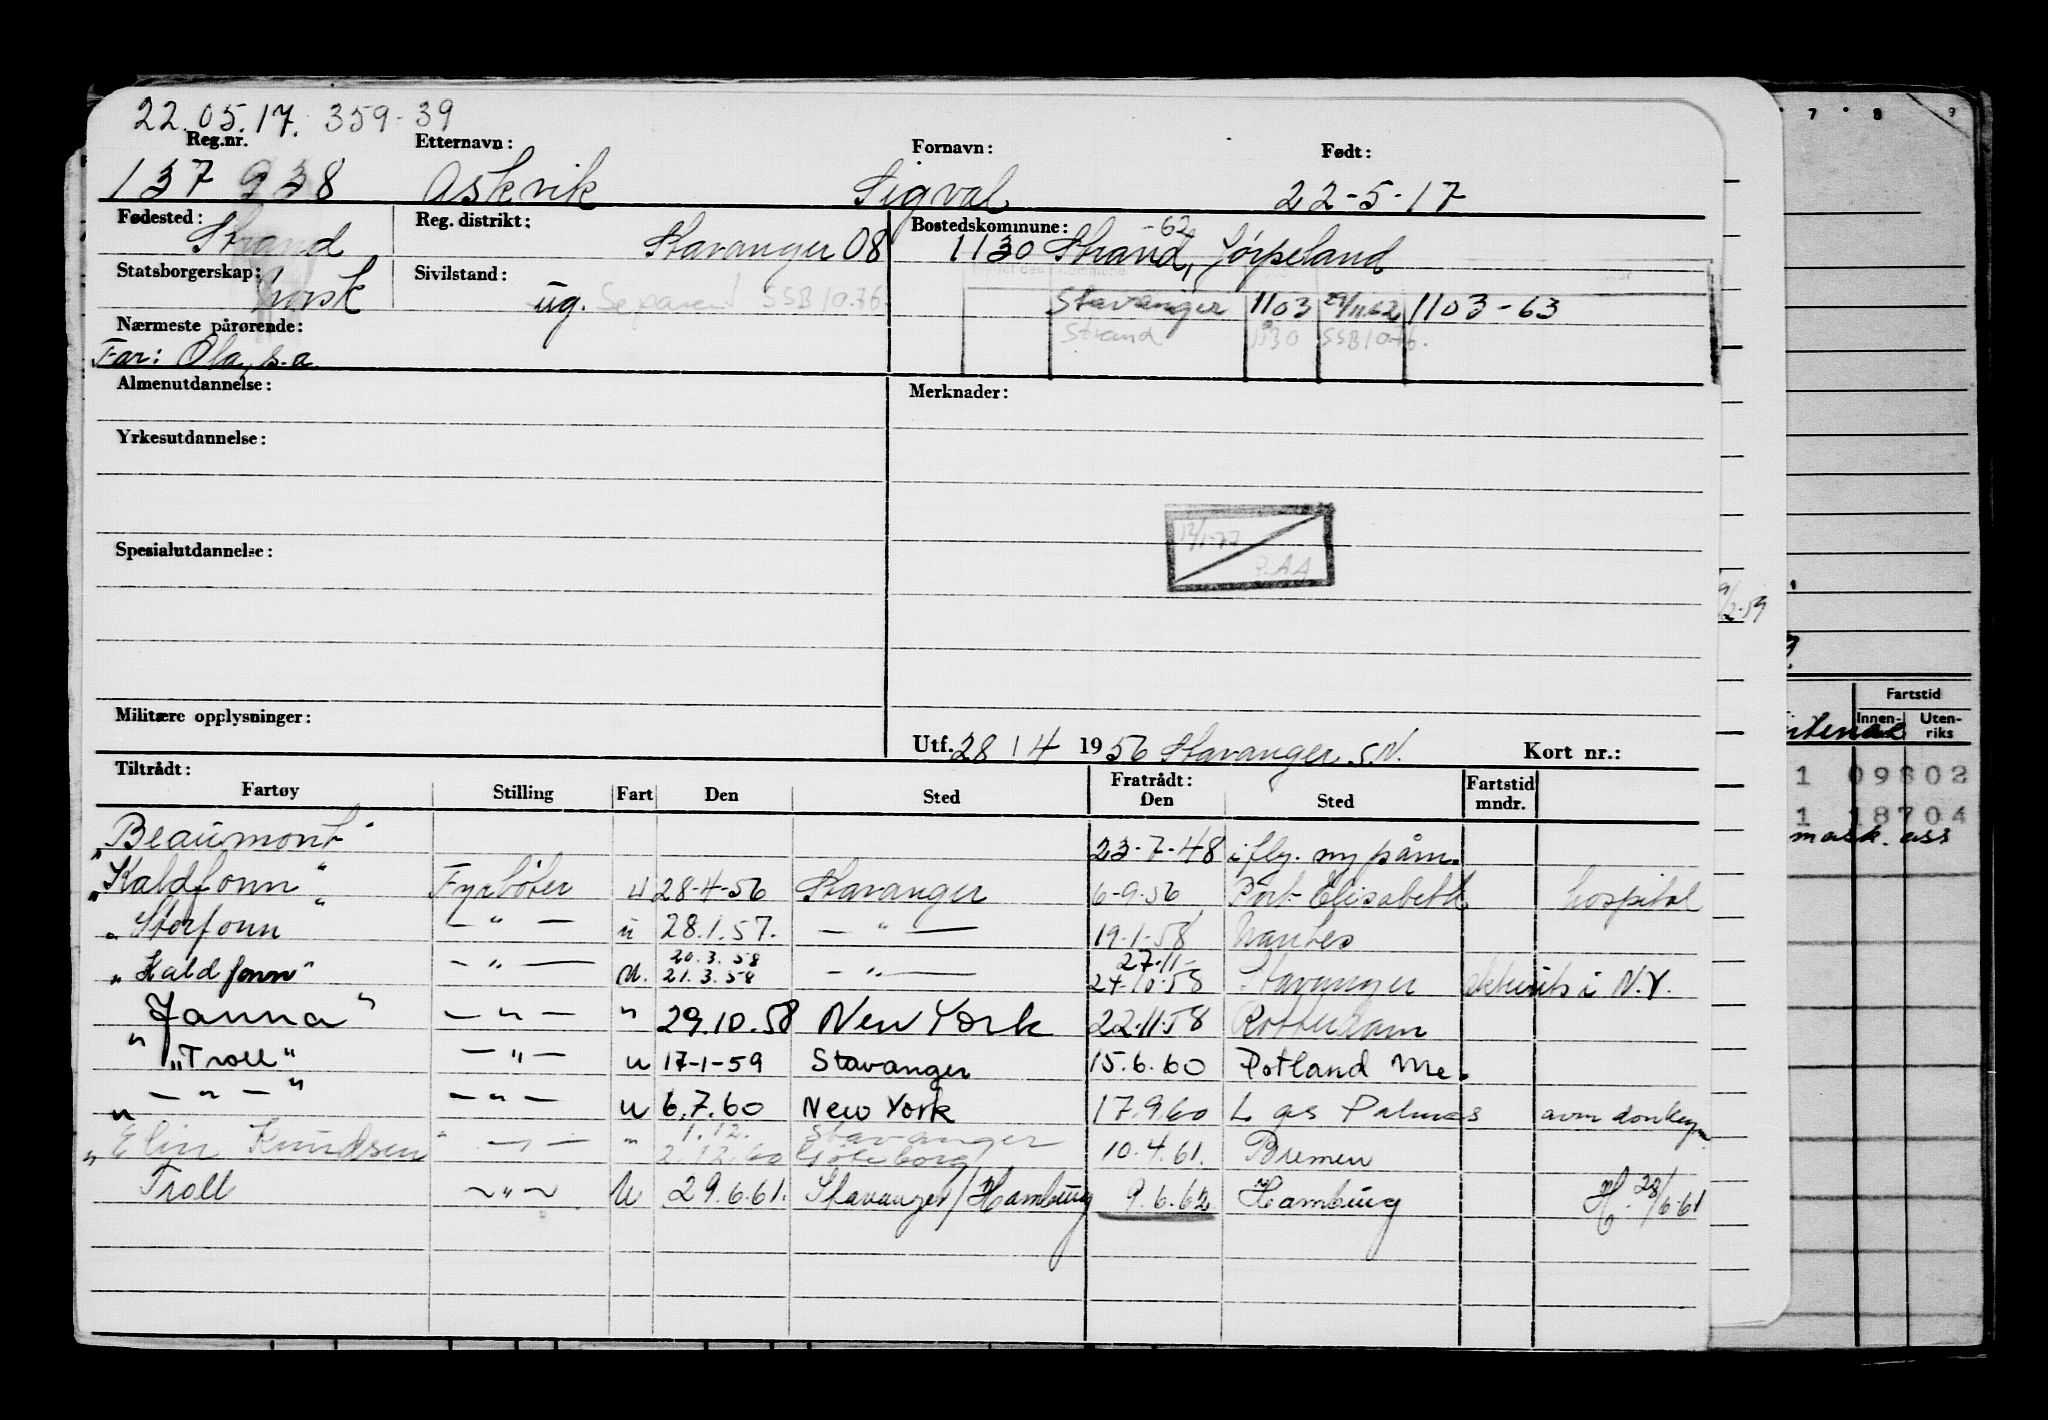 22.05.17. 359-39
Reg.nr. Etternavn: Fornavn: Født:
137 938 Askvik Sigval 22-5-17
Fødested: Strand Reg. distrikt: Stavanger 08 Bostedskommune: -62
1130 Strand, Jørpeland
Statsborgerskap: norsk Sivilstand: ug. Separert SSB 10.76
Stavanger 1103 29/11 62 1103-63
Nærmeste pårørende:
Strand 1130 SSB 10.76.
Far: Ola, s.a
Almenutdannelse: Merknader:
Yrkesutdannelse:
Spesialutdannelse:
Militære opplysninger:
Utf. 28/4 1956 Stavanger S.N. Kort nr.:
Tiltrådt: Fratrådt:
Fartøy Stilling Fart Den Sted Den Sted Fartstid mndr.
"Beaumont" 23-7-48 i flg. ny påm.
"Kaldfonn" Fyrbøter u 28-4-56 Stavanger 6-9-56 Port Elisabeth hospital
"Storfonn" — " — u 28.1.57. — " — 19-1-58 Nantes
20.3.58 27-11-
"Kaldfonn" — " — u. 21.3.58 — " — 24-10-58 Stavanger i N.Y.
"Janna" — " — " 29.10.58 New York 22.11.58 Rotterdam
"Troll" — " — u 17-1-59 Stavanger 15.6.60 Potland Me.
" — " — " — " — u 6.7.60 New York 17.9.60 Las Palmas avm donkeym
1.12. Stavanger
"Elin Knudsen" — " — " 2.12.60 Göteborg 10.4.61. Bremen
Troll — " — u 29.6.61. Stavanger/Hamburg 9.6.62 Hamburg H. 28/6-61
7 8 9
9/2-59
Fartstid
Innen- Uten-
riks
1 09602
1 18704
mask. ass